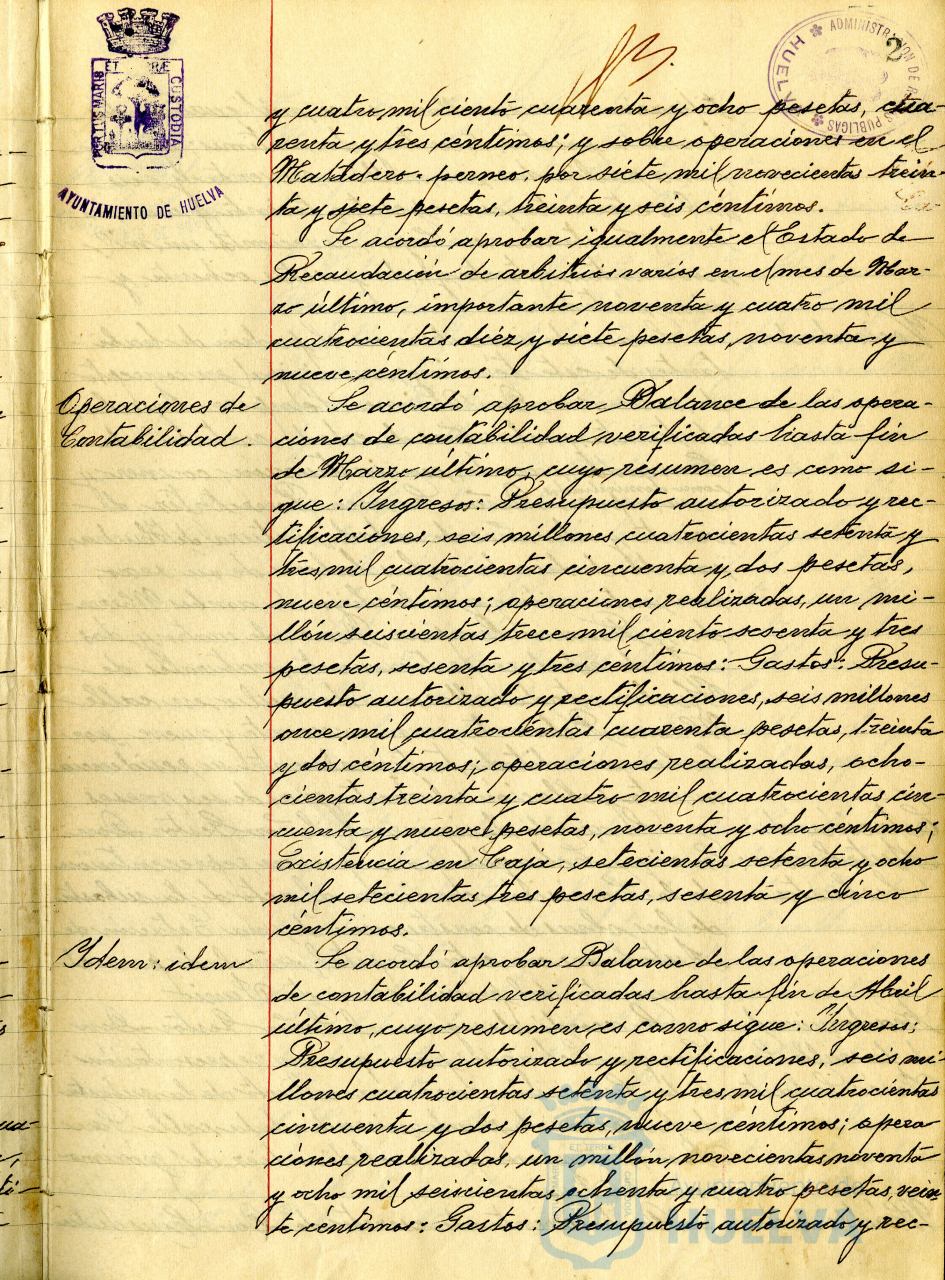 PORTUS MARIS ET TERRÆ CUSTODIA
AYUNTAMIENTO DE HUELVA
ADMINISTRACION DE
PUBLICAS
HUELVA
2
y cuatro mil ciento cuarenta y ocho pesetas, cua-
renta y tres céntimos; y sobre operaciones en el
Matadero. perneo. por siete mil novecientas trein-
ta y siete pesetas, treinta y seis céntimos.
Se acordó aprobar igualmente el Estado de
Recaudación de arbitrios varios en el mes de Mar-
zo último, importante noventa y cuatro mil
cuatrocientas diéz y siete pesetas, noventa y
nueve céntimos.
Operaciones de
Contabilidad.
Se acordó aprobar Balance de las opera-
ciones de contabilidad verificadas hasta fin
de Marzo último, cuyo resumen es como si-
gue: Ingresos: Presupuesto autorizado y rec-
tificaciones, seis millones cuatrocientas setenta y
tres mil cuatrocientas cincuenta y dos pesetas,
nueve céntimos; operaciones realizadas, un mi-
llón seiscientas trece mil ciento sesenta y tres
pesetas, sesenta y tres céntimos: Gastos: Presu-
puesto autorizado y rectificaciones, seis millones
once mil cuatrocientas cuarenta pesetas, treinta
y dos céntimos; operaciones realizadas, ocho-
cientas treinta y cuatro mil cuatrocientas cin-
cuenta y nueve pesetas, noventa y ocho céntimos;
Existencia en Caja, setecientas setenta y ocho
mil setecientas tres pesetas, sesenta y cinco
céntimos.
Idem: idem
Se acordó aprobar Balance de las operaciones
de contabilidad verificadas hasta fin de Abril
último, cuyo resumen es como sigue: Ingresos:
Presupuesto autorizado y rectificaciones, seis mi-
llones cuatrocientas setenta y tres mil cuatrocientas
cincuenta y dos pesetas, nueve céntimos; opera
ciones realizadas, un millón novecientas noventa
y ocho mil seiscientas ochenta y cuatro pesetas, vein
te céntimos: Gastos: Presupuesto autorizado y rec-
HUELVA